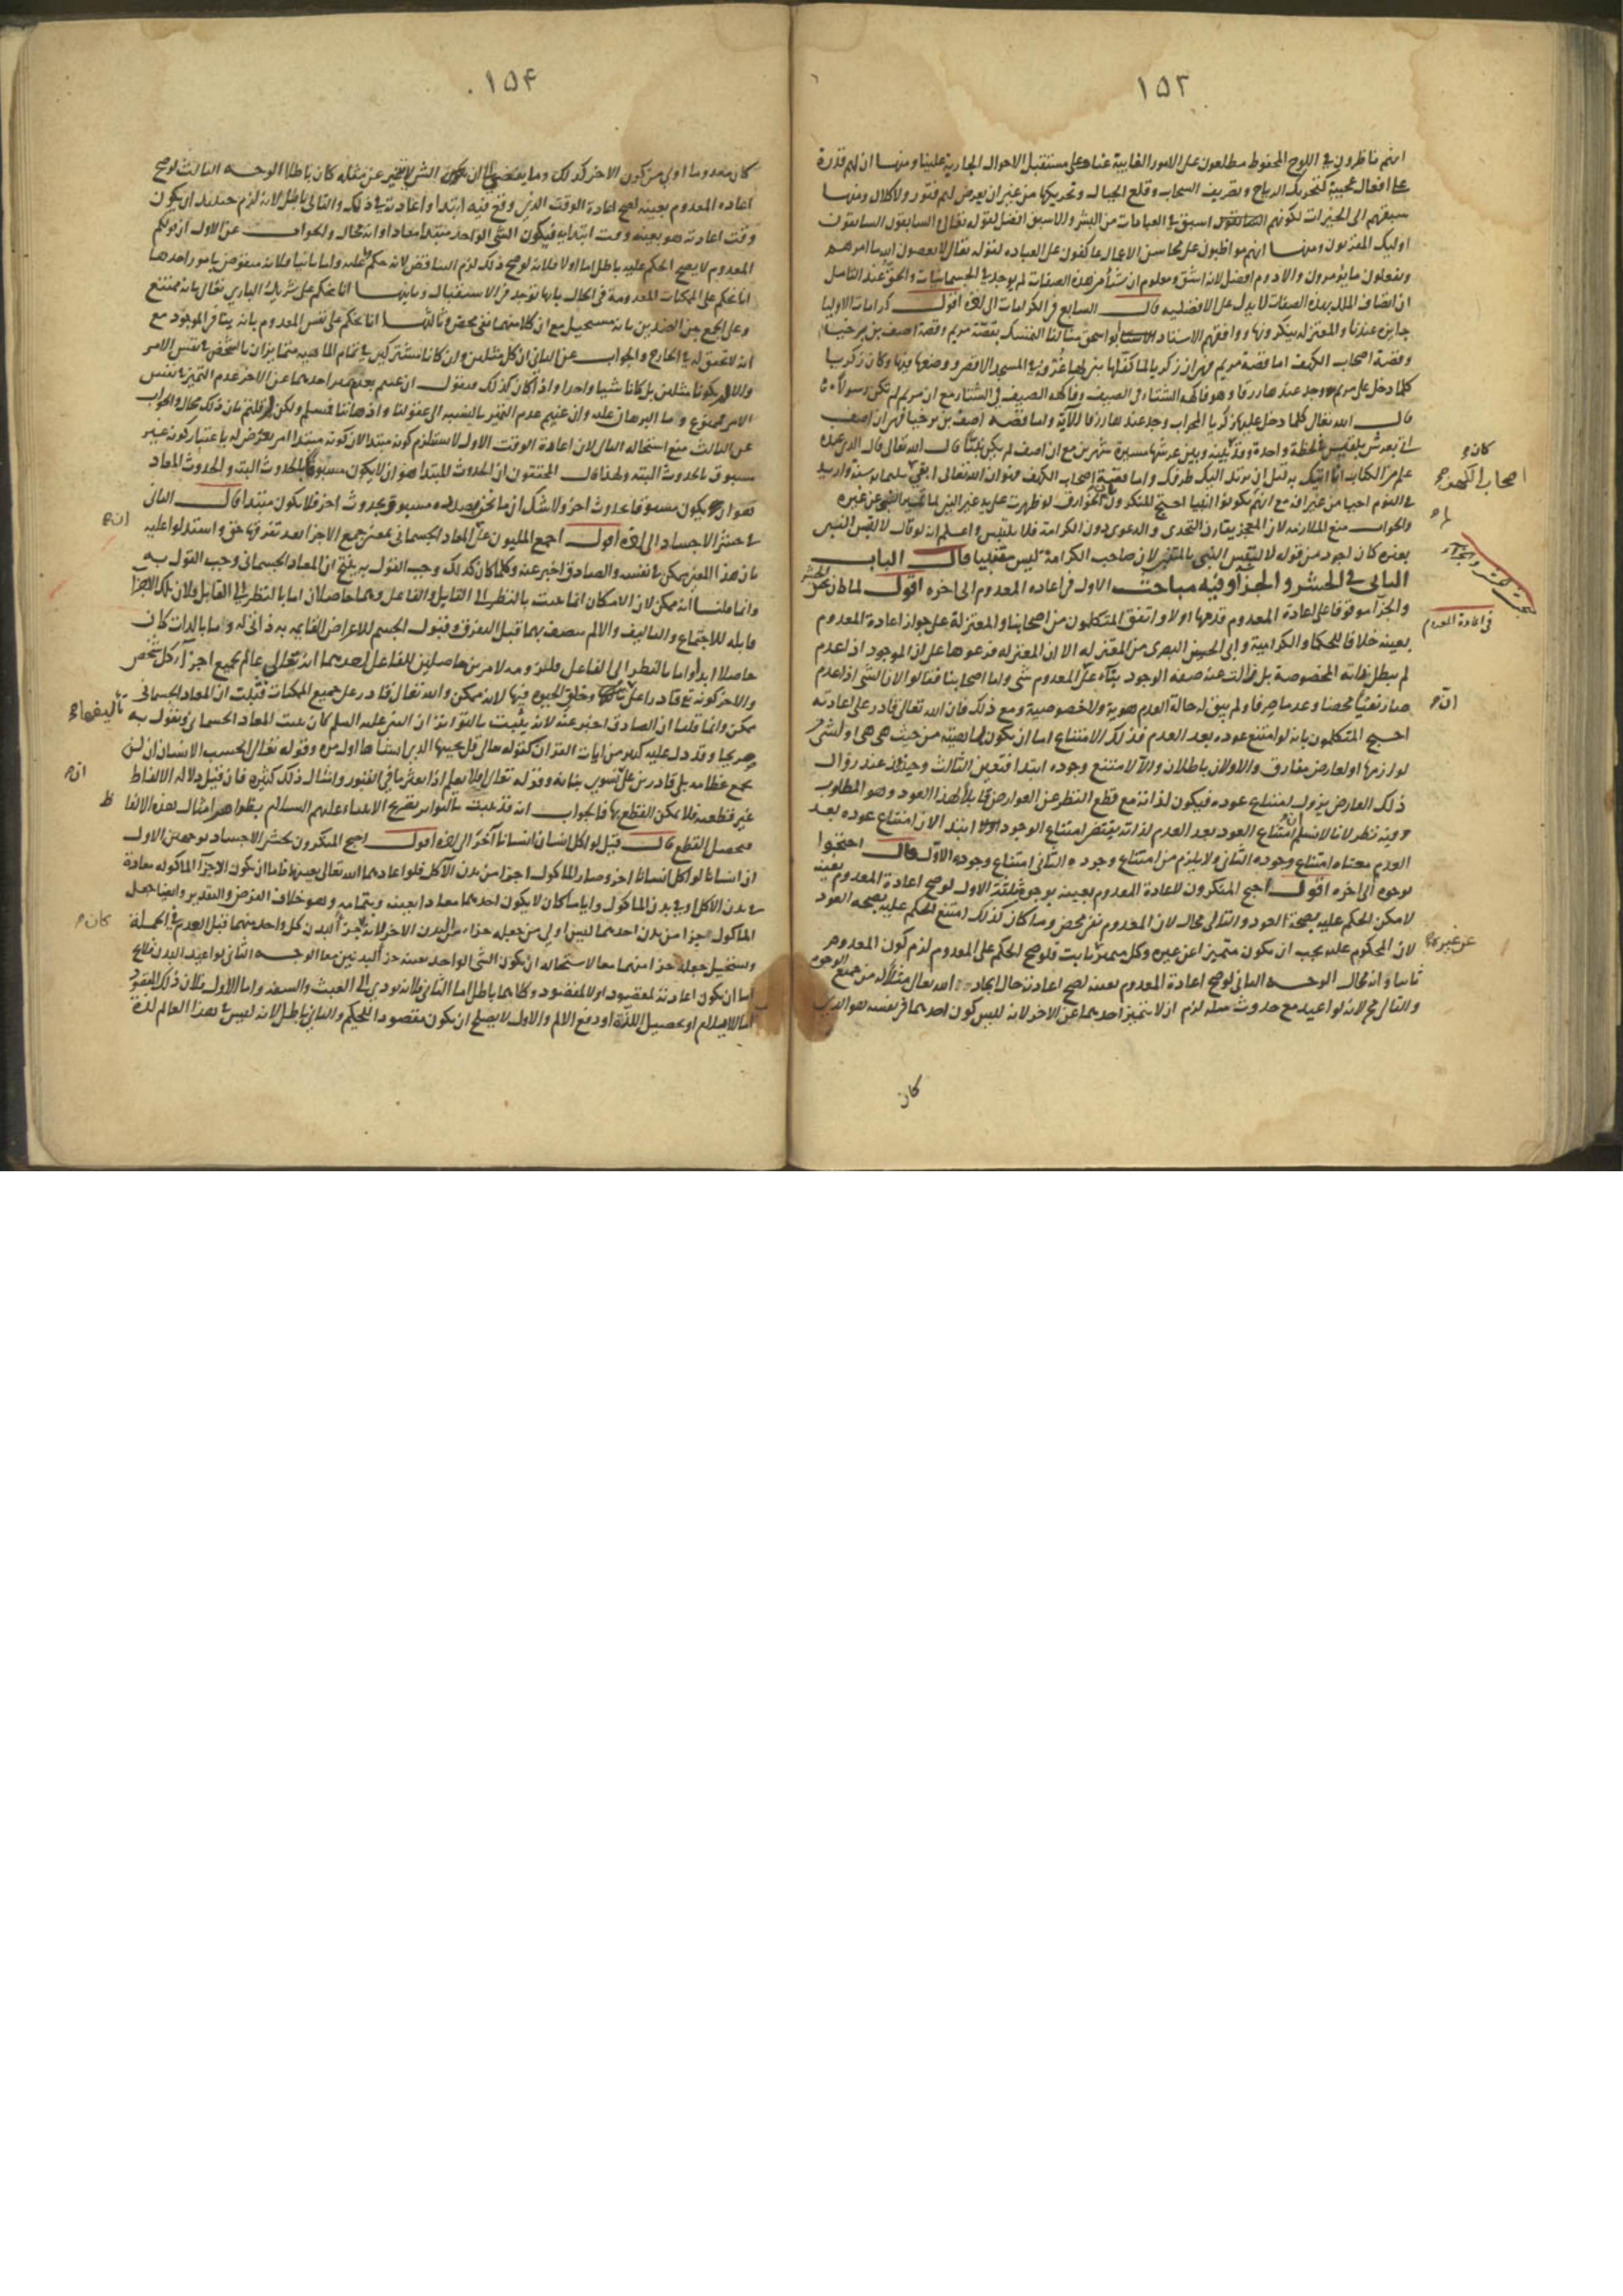 ١٥٣
انهم ناظرون في اللوح المحفوظ مطلعون على الامور الغايبة عنا وعلى مستقبل الاحوال الجارية علينا ومنها ان لهم قدرة
على افعال عجيبة كتحريك الرياح وتصريف السحاب وقلع الجبال وتحريكها من غير ان يعرض لهم فتور ولا كلال ومنها
سبقهم الى الخيرات لكونهم اسبق في العبادات من البشر والاسبق افضل لقوله تعالى والسابقون السابقون
اوليك المقربون ومنها انهم مواظبون على محاسن الاعمال عاكفون على العباده لقوله تعالى لا يعصون الله ما امرهم
ويفعلون ما يؤمرون والادوم افضل لانه اشق ومعلوم ان شيأ من هذه الصفات لم يوجد في الجسمانيات والحق عند التامل
ان اتصاف الملك بهذه الصفات لا يدل على الافضليه قال السابع في الكرامات الى اخره اقول كرامات الاوليا
جايزه عندنا والمعتزله ينكرونها ووافقهم الاستاد ابو اسحق منا لنا التمسك بقصة مريم وقصة اصف بن برخيا
وقصة اصحاب الكهف اما قصة مريم فهو ان زكريا لما كفلها بنى لها غرفة في المسجد الاقصى ووضعها فيها وكان زكريا
كلما دخل على مريم وجد عندها رزقا وهو فاكهه الشتاء في الصيف وفاكهه الصيف في الشتا مع ان مريم لم تكن رسولا
قال الله تعالى كلما دخل عليها زكريا المحراب وجد عندها رزقا الآية واما قصة اصف بن برخيا فهو ان اصف
اتى بعرش بلقيس في لحظة واحدة وقد بينه وبين عرشها مسيرة شهرين مع ان اصف لم يكن نبيا قال الله تعالى قال الذي عنده
علم من الكتاب انا اتيك به قبل ان يرتد اليك طرفك واما قصة اصحاب الكهف فهو ان الله تعالى ابقى
في النوم احيا من غير افة مع انهم لم يكونوا انبيا احتج المنكرون بان الخوارق لو ظهرت على يد غير النبي لما تميز النبي عن غيره
والجواب منع الملازمه لان المعجز يقارن التحدي والدعوى دون الكرامة فلا يلتبس واعلم انه لو قال لالتبس النبي
بغيره كان اجود من قوله لالتبس النبي بالمتنبي لان صاحب الكرامة ليس متنبيا قال الباب
الثاني في الحشر والجزآ وفيه مباحث الاول في اعاده المعدوم الى اخره اقول لما كان بحث الحشر
والجزآ موقوفا على اعادة المعدوم قدمها اولا واتفق المتكلمون من اصحابنا والمعتزلة على جواز اعادة المعدوم
بعينه خلافا للحكما والكرامية وابي الحسين البصري من المعتزله الا ان المعتزله فرعوها على ان الموجود اذا عدم
لم يبطل ذاته المخصوصة بل زالت عنه صفة الوجود بنآء على ان المعدوم شي واما اصحابنا فقالوا الا ان الشي اذا عدم
صار نفيا محضا وعدما صرفا ولم يبق له حالة العدم هوية ولا خصوصية ومع ذلك فان الله تعالى قادر على اعادته
احتج المتكلمون بانه لو امتنع عوده بعد العدم فذلك الامتناع اما ان يكون لماهيته من حيث هي هي او لشي من
لوازمها او لعارض مفارق والاولان باطلان والا لامتنع وجوده ابتدا فتعين الثالث وحينئذ عند زوال
ذلك العارض يزول امتناع عوده فيكون لذاته مع قطع النظر عن العوارض قابلا لهذا العود وهو المطلوب
وفيه نظر لانا لا نسلم ان امتناع العود بعد العدم لذاته يقتضى امتناع الوجود ابتدا لان امتناع عوده بعد
العدم معناه امتناع وجوده الثاني ولا يلزم من امتناع وجوده الثاني امتناع وجوده الاول قال احتجوا
بوجوه الى اخره اقول احتج المنكرون لاعادة المعدوم بعينه بوجوه ثلثة الاول لو صح اعادة المعدوم بعينه
لامكن الحكم عليه بصحة العود والتالى محال لان المعدوم نفي محض وما كان كذلك امتنع الحكم عليه بصحة العود
لان المحكوم عليه يجب ان يكون متميزا عن غيره وكل متميز ثابت فلو صح الحكم على المعدوم لزم كون المعدوم
ثابتا وانه محال الوجه الثاني لو صح اعادة المعدوم بعينه لصح اعادته حال ايجاد الله تعالى مثلا له من جميع الوجوه
والتالى مح لانه لو اعيد مع حدوث مثله لزم ان لا يتميز احدهما عن الاخر لانه ليس كون احدهما في نفسه هو الذي
كان
كان
اصحاب الكهف
في اعادة المعدوم
عن غيره
١٥٤
كان معدوما اولى من كون الاخر كذلك وما يفضي الى ان يكون الشي لا يتميز عن مثله كان باطلا الوجه الثالث لو صح
اعاده المعدوم بعينه لصح اعادة الوقت الذي وقع فيه ابتدا واعادته في ذلك والتالى باطل لانه لزم حينئذ ان يكون
وقت اعادته هو بعينه وقت ابتدايه فيكون الشي الواحد مبتدا معادا وانه محال والجواب عن الاول ان قولكم
المعدوم لا يصح الحكم عليه باطل اما اولا فلانه لو صح ذلك لزم التناقض لانه حكم عليه واما ثانيا فلانه منقوض بامور احدها
انا نحكم على الممكنات المعدومة في الحال بانها توجد في الاستقبال وثانيها انا نحكم على شريك الباري تعالى بانه ممتنع
وعلى الجمع بين الضدين بانه مستحيل مع ان كلا منهما نفي محض وثالثها انا نحكم على نفس المعدوم بانه ينافي الموجود مع
انه لا تحقق له في الخارج والجواب عن الثاني ان كل مثلين وان كانا مشتركين في تمام الماهيه متمايزان بالشخص في نفس الامر
والا لم يكونا مثلين بل كانا شيئا واحدا واذا كان كذلك فنقول ان عنيتم بعدم تميز احدهما عن الاخر عدم التميز في نفس
الامر ممنوع وما البرهان عليه وان عنيتم عدم التميز بالنسبه الى عقولنا واذهاننا فمسلم ولكن لم قلتم بان ذلك محال والجواب
عن الثالث منع استحاله التالى لان اعادة الوقت الاول لا يستلزم كونه مبتدا لان كونه مبتدا امر يعرض له باعتبار كونه غير
مسبوق بالحدوث البته ولهذا قال المحققون ان الحدوث المبتدا هو ان لا يكون مسبوقا بالحدوث البته والحدوث المعاد
هو ان يكون مسبوقا بحدوث اخر ولا شك ان ما نحن بصدده مسبوق بحدوث اخر فلا يكون مبتدا قال الثاني
في حشر الاجساد الى اخره اقول اجمع المليون على ان المعاد الجسماني بمعنى جمع الاجزا بعد تفرقها حق واستدلوا عليه
بان هذا المعنى ممكن في نفسه والصادق اخبر عنه وكلما كان كذلك وجب القول به ينتج ان المعاد الجسماني وجب القول به
وانما قلنا انه ممكن لان الامكان انما يثبت بالنظر الى القابل والفاعل وهما حاصلان اما بالنظر الى القابل فلان تلك الاجزا
قابله للاجتماع والتاليف والا لم يتصف بهما قبل التفرق وقبول الجسم للاعراض القايمه به ذاتى له وما بالذات كان
حاصلا ابدا واما بالنظر الى الفاعل لامرين حاصلين للفاعل احدهما انه تعالى عالم بجميع اجزا كل شخص
والاخر كونه تع قادرا على وخلق الحيوة فيها لانه ممكن والله تعالى قادر على جميع الممكنات فثبت ان المعاد الجسماني
ممكن وانما قلنا ان الصادق اخبر عنه لانه يثبت بالتواتر ان النبي عليه السلم كان يثبت المعاد الجسماني ويقول به
صريحا وقد دل عليه كثير من ايات القرآن كقوله تعالى قل يحييها الذي انشاها اول مرة وقوله تعالى ايحسب الانسان ان لن
نجمع عظامه بلى قادرين على ان نسوي بنانه وقوله تعالى افلا يعلم اذا بعثر ما في القبور وامثال ذلك كثيره فان قيل دلاله الالفاظ
غير قطعيه فلا يمكن القطع بها فالجواب انه قد ثبت بالتواتر تصريح الانبياء عليهم السلام بظواهر امثال هذه الالفاظ
فحصل القطع قال قيل لو اكل انسان انسانا آخر الى اخره اقول احتج المنكرون بحشر الاجساد بوجهين الاول
ان انسانا لو اكل انسانا اخر وصار الماكول اجزا من بدن الآكل فلو اعادهما الله تعالى بعينهما فاما ان يكون الاجزآ الماكوله معادة
في بدن الآكل او في بدن الماكول وايا ما كان لا يكون احدهما معادا بعينه وبتمامه وهو خلاف الفرض والتقدير وايضا جعل
الماكول جزا من بدن احدهما ليس اولى من جعله جزا من البدن الاخر لانه جزء لبدن كل واحد منهما قبل العدم في الجملة
ويستحيل جعله جزا منهما معا لاستحاله ان يكون الشي الواحد بعينه جزا لبدنين معا الوجه الثاني لو اعيد البدن فلا يخ
اما ان يكون اعادته لمقصود او لا لمقصود وكلاهما باطل اما الثاني فلانه يودي الى العبث والسفه واما الاول فلان ذلك المقصود
اما الايلام او تحصيل اللذة او دفع الالم والاول لا يصلح ان يكون مقصودا للحكيم والثاني باطل لانه ليس في هذا العالم لذة
تاليفها
كان